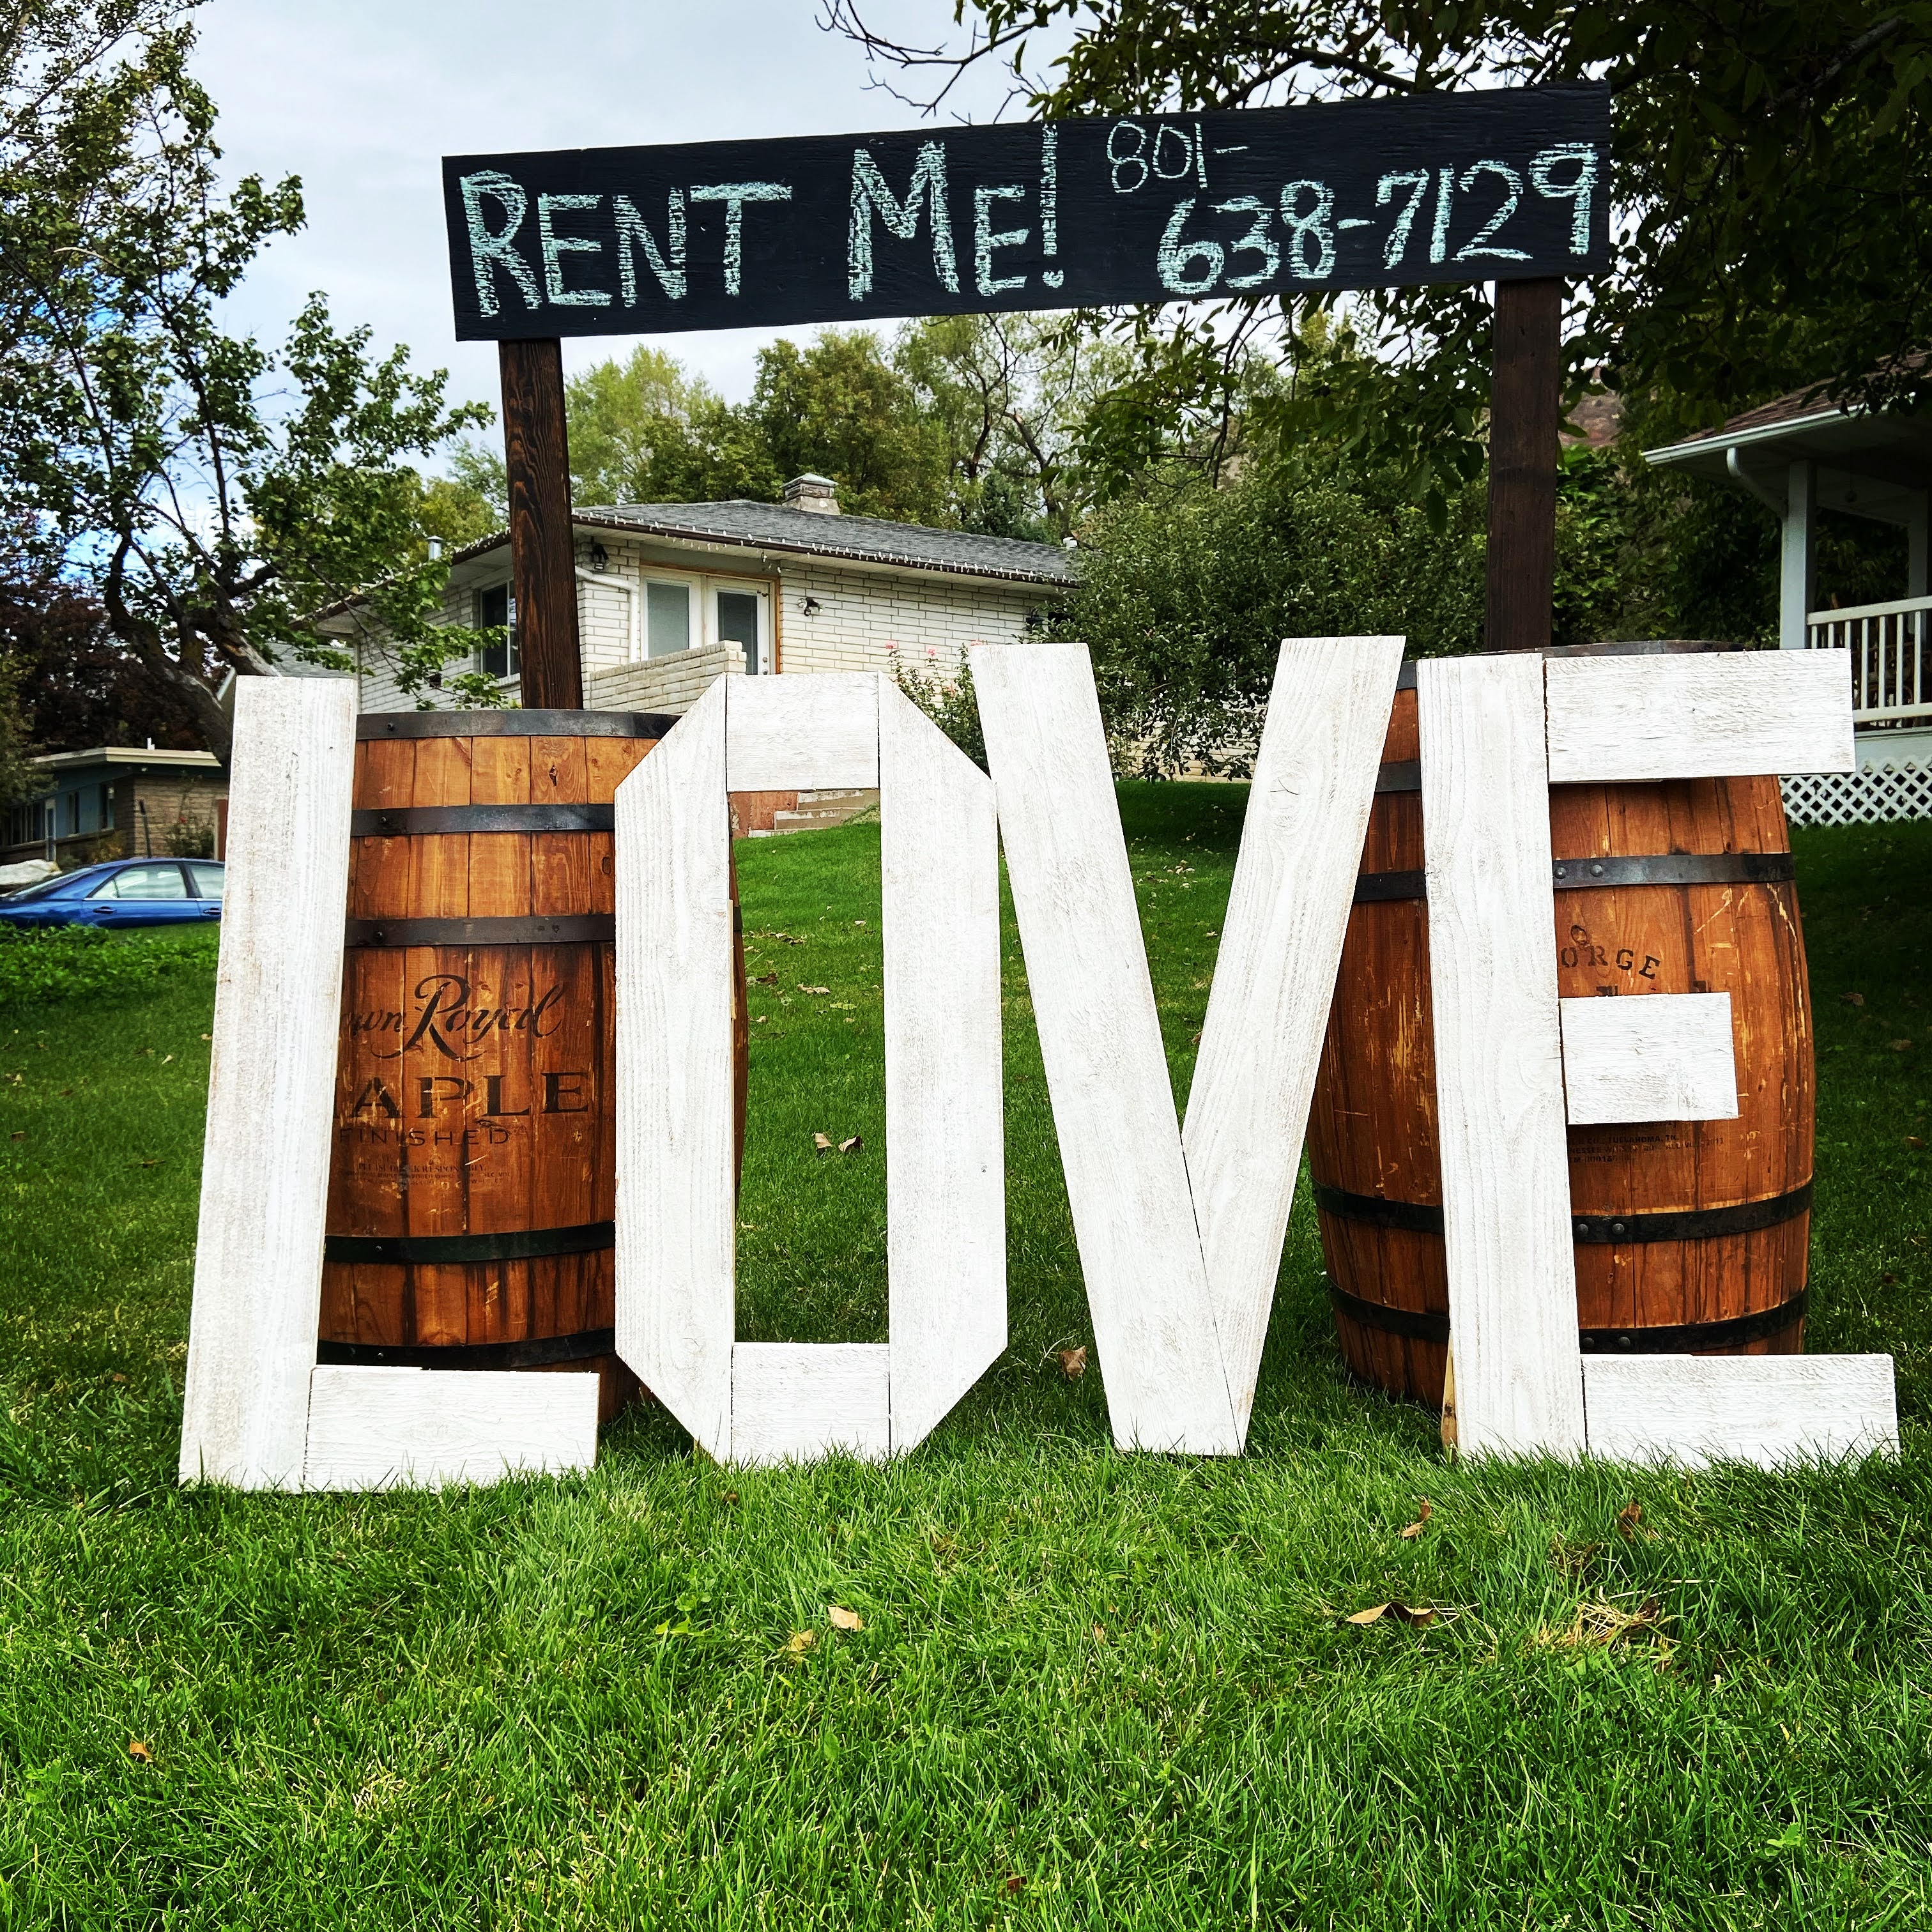 RENT ME! 801-
638-7129
LOVE
wn Royal
APLE
FINISHED
ORGE